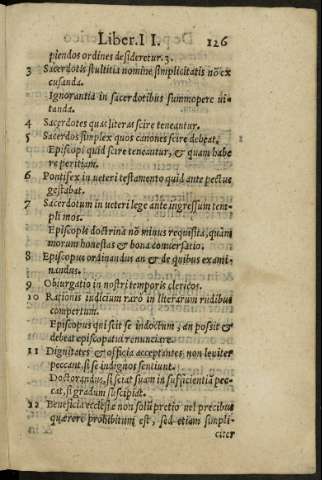 Liber. I I. 126
piendos ordines desideretur. 3.
3 Sacerdotis stultitia nomine simplicitatis nō ex
cusanda.
Ignorantia in sacerdotibus summopere ui-
tanda.
4 Sacerdotes quas literas scire teneantur.
5 Sacerdos simplex quos canones scire debeat.
Episcopi quid scire teneantur, & quam habe
re peritiam.
6 Pontifex in ueteri testamento quid ante pectus
gestabat.
7 Sacerdotum in ueteri lege ante ingressum tem-
pli mos.
Episcopis doctrina nō minus requisita, quàm
morum honestas & bona conuersatio.
8 Episcopus ordinandus an & de quibus exami
nandus.
9 Obiurgatio in nostri temporis clericos.
10 Rationis iudicium rarò in literarum rudibus
compertum.
Episcopus qui scit se indoctum, an possit &
debeat episcopatui renunciare.
11 Dignitates & officia acceptantes, non leuiter
peccant, si se indignos sentiunt.
Doctorandus, si sciat suam insufficientiā pec-
cat, si gradum suscipiat.
12 Beneficia ecclesiæ non solū pretio uel precibus
quærere prohibitum est, sed etiam simpli-
citer